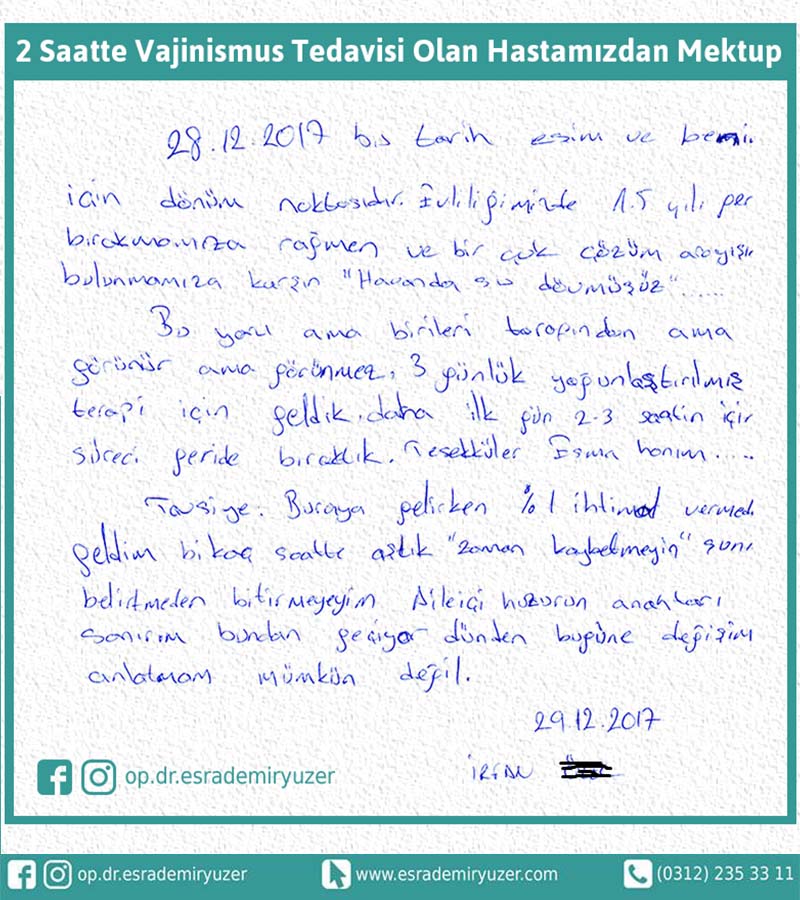 2 Saatte Vajinismus Tedavisi Olan Hastamızdan Mektup
28.12.2017 bu tarih eşim ve benim
için dönüm noktasıdır. Evliliğimizde 1.5 yılı geri
bırakmamıza rağmen ve bir çok çözüm arayışı
bulunmamıza karşın "Havanda su dövmüşüz".....
Bu yarıl ama birileri tarafından ama
görünür ama görünmez, 3 günlük yoğunlaştırılmış
terapi için geldik, daha ilk gün 2-3 saatin içir
süreci geride bıraktık. Teşekkürler Esma hanım.....
Tavsiye. Buraya gelirken %1 ihtimal vermed
geldim bikaç saatte aştık "zaman kaybetmeyin" şunu
belirtmeden bitirmeyeyim Aileiçi huzurun anahtarı
sanırım bundan geçiyor dünden bugüne değişim
anlatmam mümkün değil.
29.12.2017
İRFAN
op.dr.esrademiryuzer
op.dr.esrademiryuzer
www.esrademiryuzer.com
(0312) 235 33 11